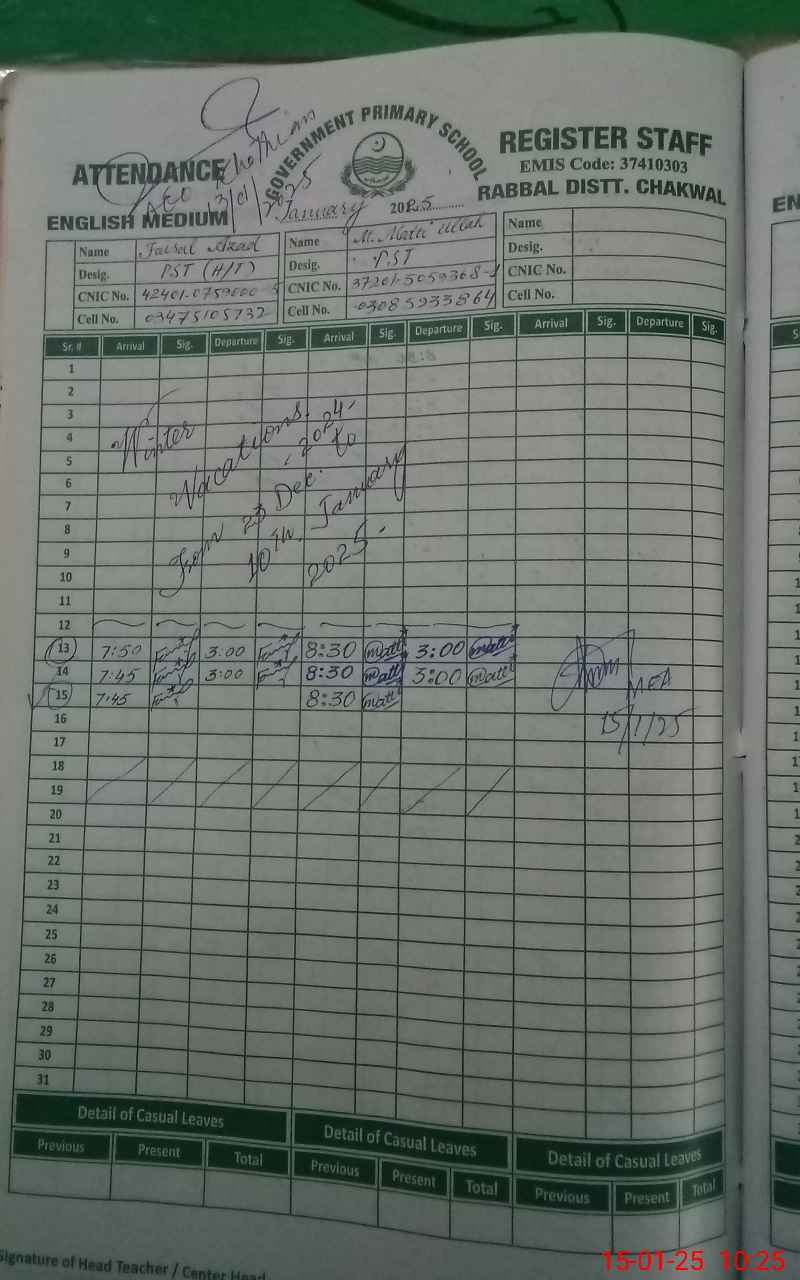 GOVERNMENT PRIMARY SCHOOL
ATTENDANCE
REGISTER STAFF
EMIS Code: 37410303
AEO
13/01/2025
ENGLISH MEDIUM
January 2025
RABBAL DISTT. CHAKWAL
Name Faisal Azad Name M. Matti Ullah Name
Desig. PST (H/T) Desig. PST Desig.
CNIC No. 42401-0759000-5 CNIC No. 37201-5059368-1 CNIC No.
Cell No. 03475105732 Cell No. 03085933864 Cell No.
Sr. # Arrival Sig. Departure Sig. Arrival Sig. Departure Sig. Arrival Sig. Departure Sig.
1
2
3
4
5
6
7
8
9
10
11
Winter
Vacations
From 23 Dec. 2024 to
10th January
2025.
12
13 7:50 3:00 8:30 Matti 3:00 Matti
14 7:45 3:00 8:30 Matti 3:00 Matti
15 7:45 8:30 Matti
MEA
15/1/25
16
17
18
19
20
21
22
23
24
25
26
27
28
29
30
31
Detail of Casual Leaves Detail of Casual Leaves Detail of Casual Leaves
Previous Present Total Previous Present Total Previous Present Total
Signature of Head Teacher / Center Head
15-01-25 10:25